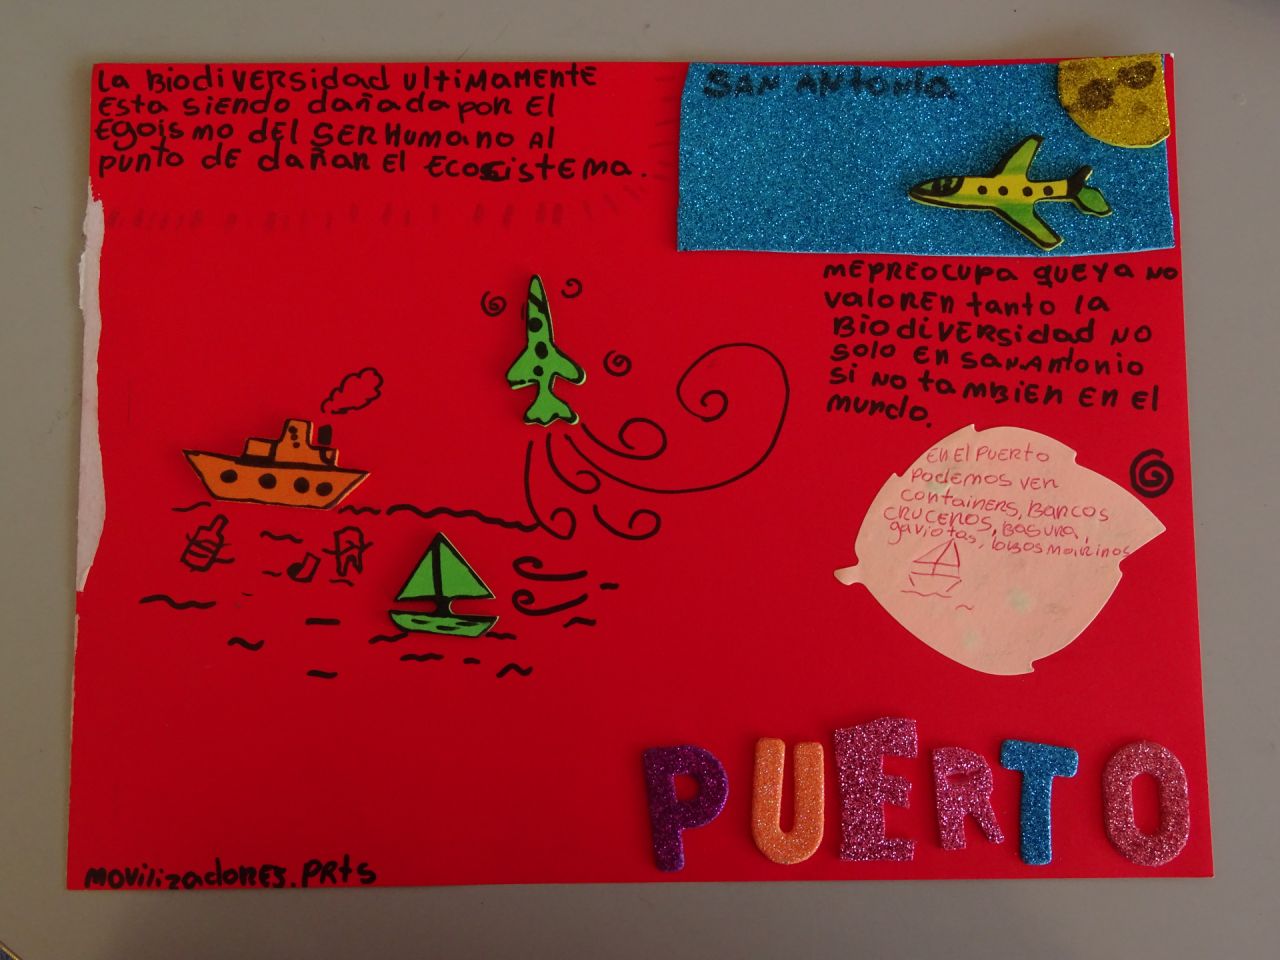 La Biodiversidad ultimamente
Esta siendo dañada por el
Egoismo del ser Humano al
punto de dañar el ecosistema.
San Antonio.
Me preocupa que ya no
valoren tanto la
Biodiversidad no
solo en san Antonio
si no tambien en el
mundo.
En el puerto
podemos ver
containers, barcos
cruceros, basura,
gaviotas, lobos marinos
PUERTO
movilizadores. PRts